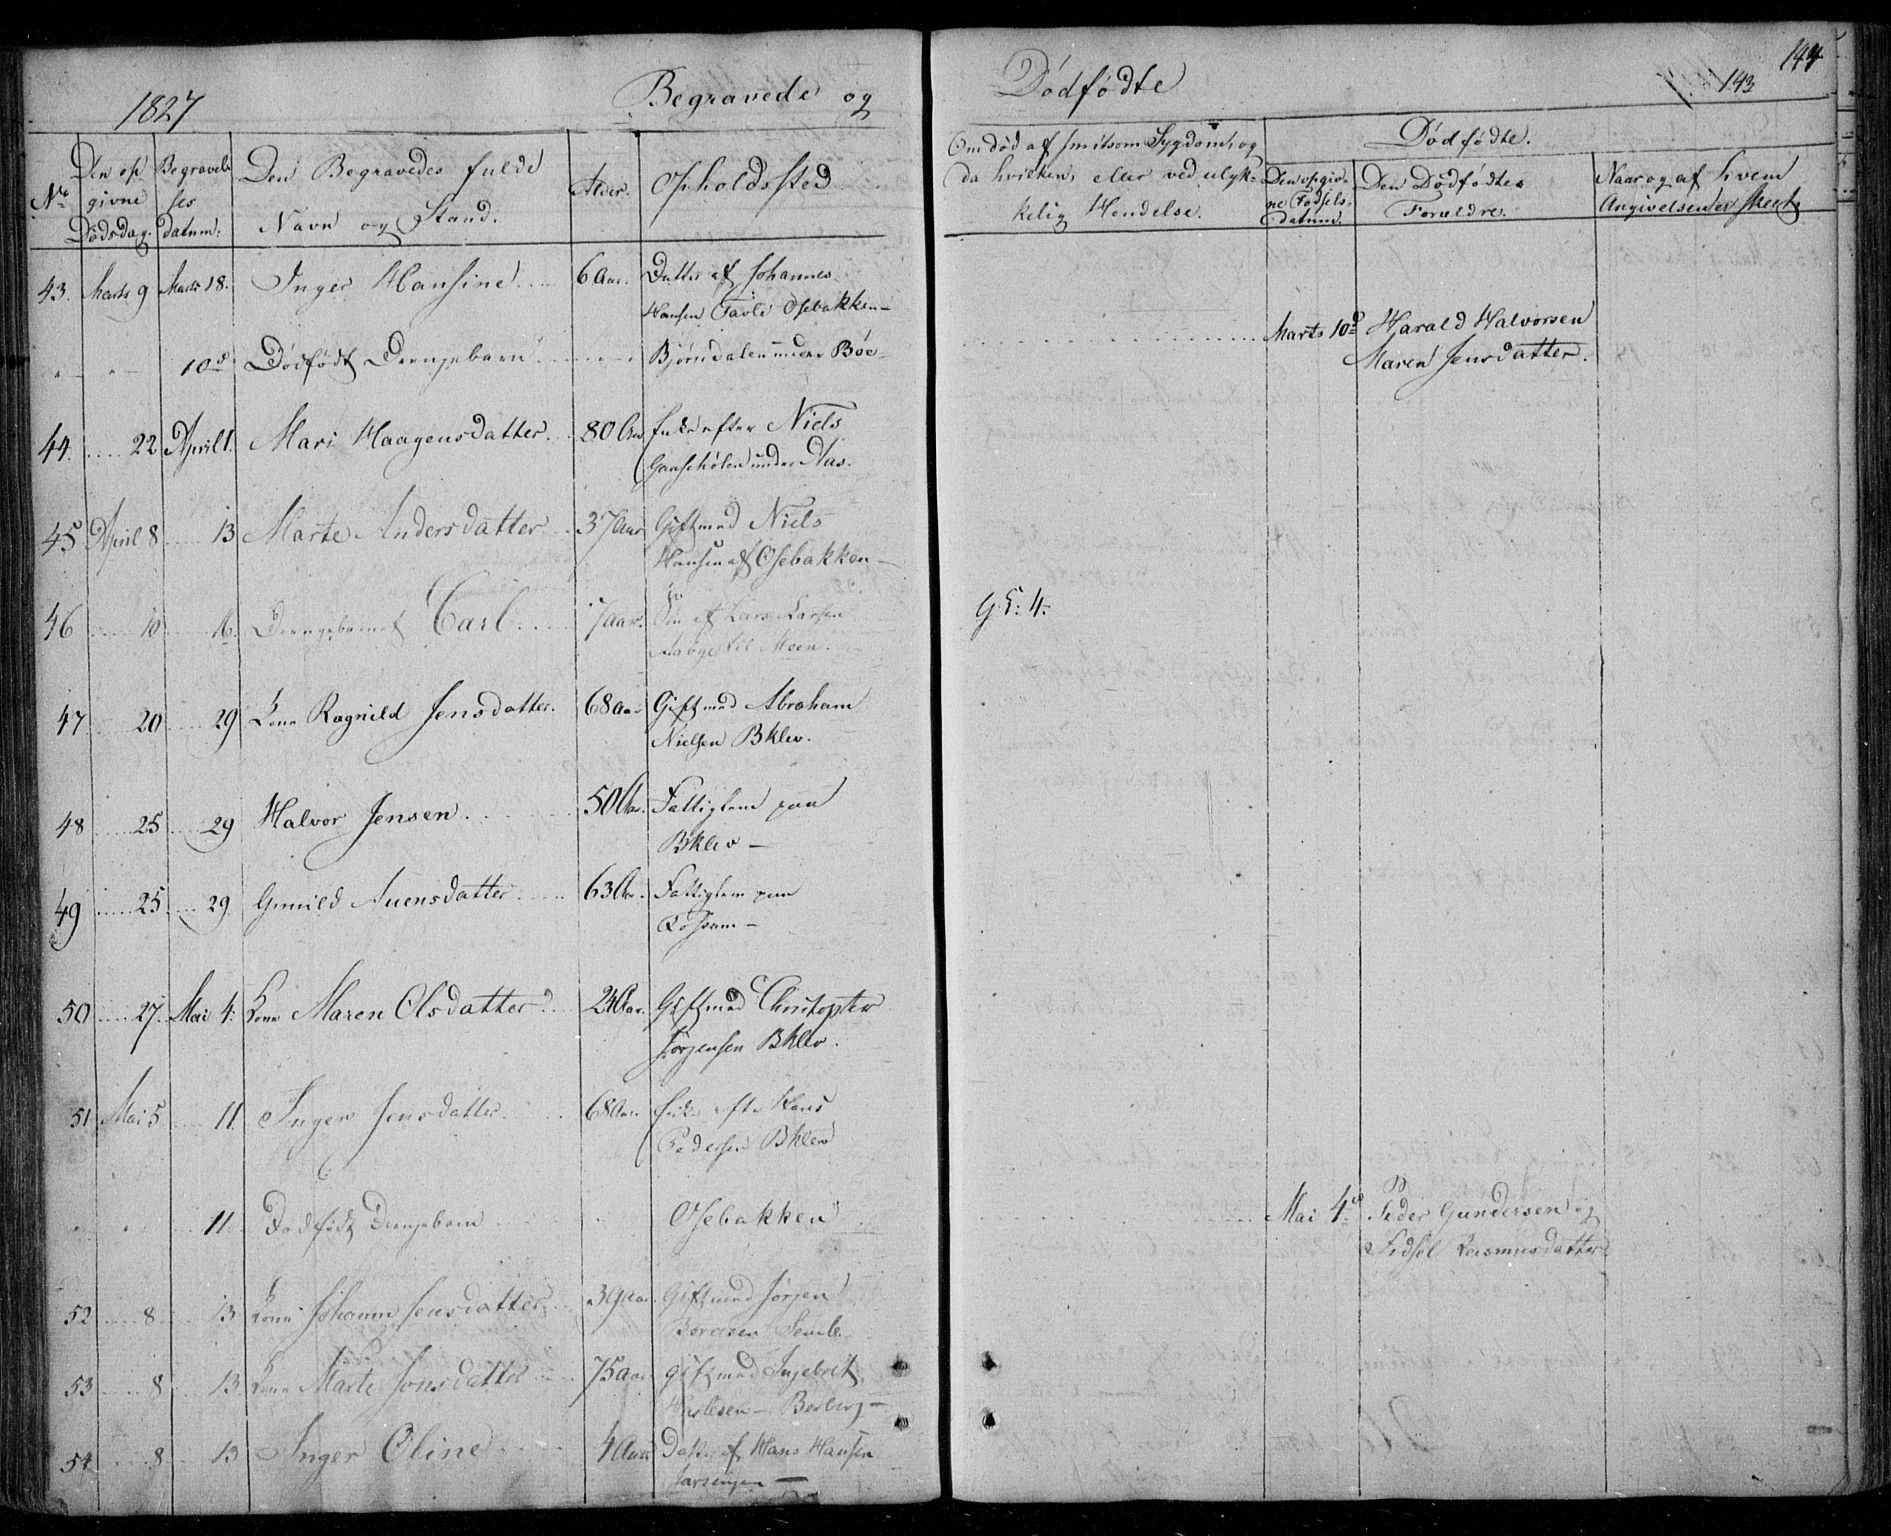 1827 Begravede og Dødfødte 144
143
No Den opgivne Dødsdag. Begravelses datum: Den Begravedes fulde Navn og Stand. Alder. Opholdssted
Om død af smitsom Sygdom, og da hvilken, eller ved ulykkelig Hendelse. Dødfødte.
Den opgivne Fødselsdatum. Den Dødfødtes Forældre. Naar og af hvem Angivelsen er skeet.
43. Marts 9 Marts 18. Inger Hansine 6 Aar. Datter af Johannes
Hansen Tavle Osebakken
10de Dødfødt Drengebarn Bjørndalen under Böe Marts 10de Harald Halvorsen
Maren Jensdatter.
44. 22 April 1. Mari Haagensdatter 80 Aar Enke efter Niels
under Aas.
45 April 8 13 Marte Andersdatter 37 Aar Gift med Niels
Hansen af Osebakken
46 10 16 Drengebarnet Carl 7 Aar. Søn af Lars Larsen
til Moen. G.L: 4.
47 20 29 Kone Ragnild Jensdatter. 68 Aar Gift med Abraham
Nielsen Bklev.
48 25 29 Halvor Jensen 50 Aar. Fattiglem paa
Bklev
49 25 29 Gunild Auensdatter 63 Aar. Fattiglem paa
50 27. Mai 4. Kone Maren Olsdatter 24 Aar. Gift med Christopher
Jørgensen Bklev.
51 Mai 5 11. Inger Jensdatter 68 Aar. Enke efter Hans
Pedersen Bklev
11. Dødfødt Drengebarn Osebakken Mai 4de Peder Gundersen og
Sidsel Rasmusdatter
52 8 13 Kone Johanne Jensdatter 39 Aar. Gift med Jørgen
53 8 13 Kone Marte Jonsdatter 75 Aar Gift med Ingebret
54 8 13 Inger Oline 4 Aar Datter af Hans Hansen